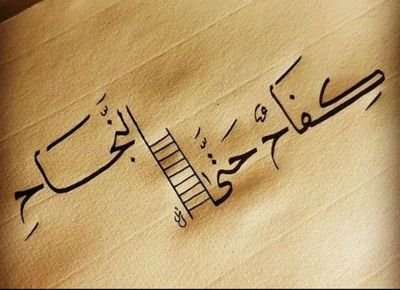 كِفَاحٌ حَتَّى النَّجَاحِ